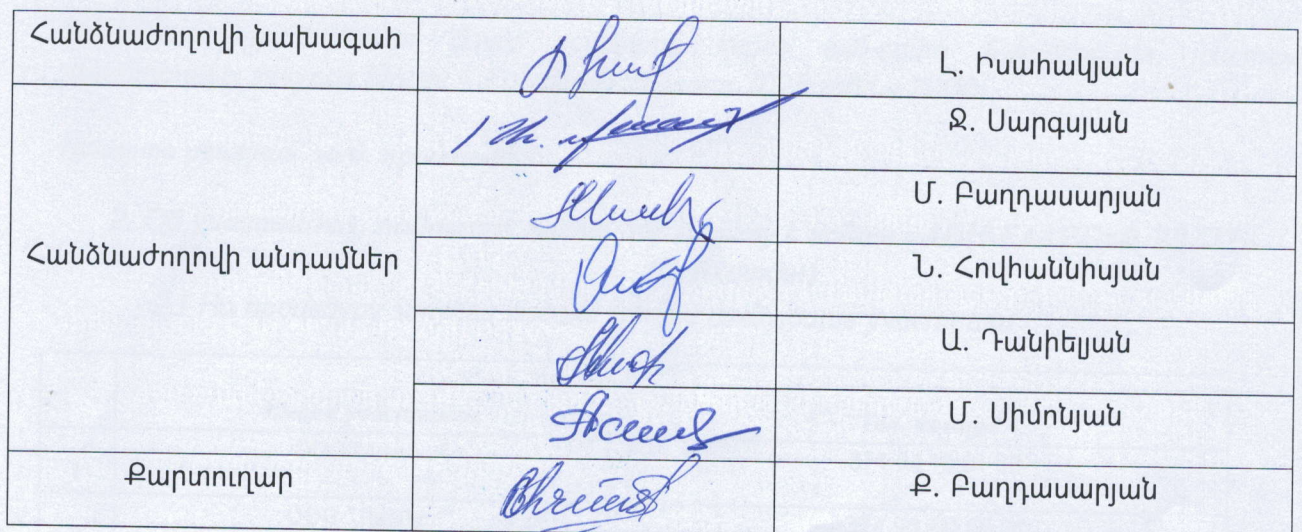 Հանձնաժողովի նախագահ
Լ. Իսահակյան
Հանձնաժողովի անդամներ
Ջ. Սարգսյան
Մ. Բաղդասարյան
Ն. Հովհաննիսյան
Ա. Դանիելյան
Մ. Սիմոնյան
Քարտուղար
Ք. Բաղդասարյան